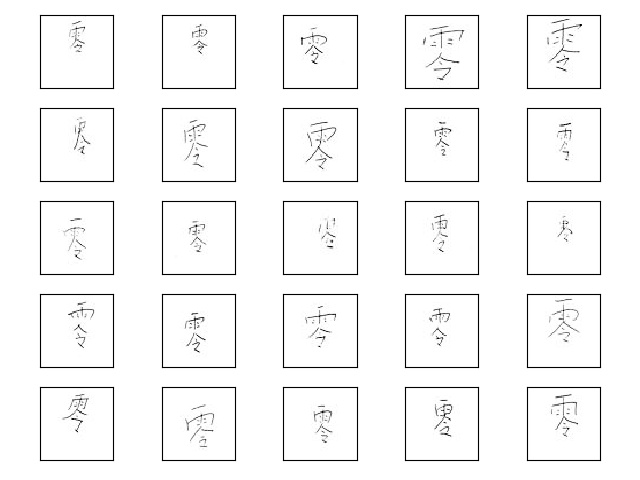 零 零 零 零 零
零 零 零 零 零
零 零 零 零 零
零 零 零 零 零
零 零 零 零 零